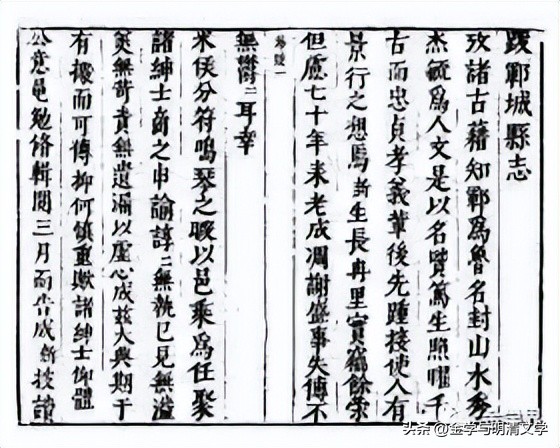 跋鄆城縣志
攷諸古籍知鄆爲魯名封山水秀
杰毓爲人文是以名賢篤生照曜千
古而忠貞孝義輩後先踵接使人有
景行之想焉新生長冉里實竊餘榮
但慮七十年来老成凋謝盛事失傳不
無鬱〻耳幸
米侯分符鳴琴之暇以邑乘爲任聚
諸紳士商之申諭諄〻無執已見無溢
美無苛責無遺漏以虛心成茲大典期于
有據而可傳抑何慎重歟諸紳士仰體
公意黽勉脩輯閱三月而告成新披讀
头条 @金学与明清文学